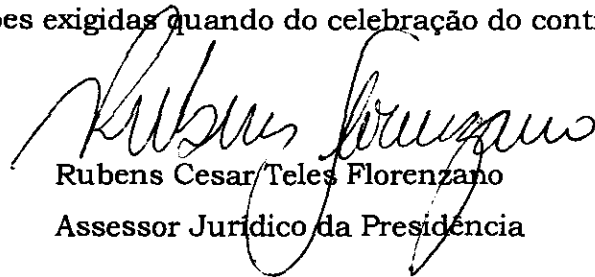 ões exigidas quando do celebração do cont
Rubens Florenzano
Rubens Cesar Teles Florenzano
Assessor Jurídico da Presidência